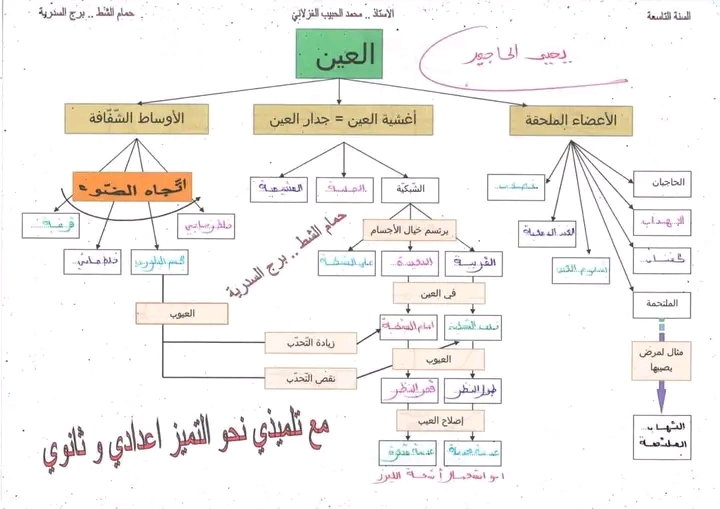 السنة التاسعة
الأستاذ .. محمد الحبيب الغزلاني
حمام الشط .. برج السدرية
العين
يحيى الحاجي
الأعضاء الملحقة
أغشية العين = جدار العين
الأوساط الشّفّافة
الحاجبان
الأهداب
الملتحمة
عضلات
الغدد الدمعية
مثال لمرض يصيبها
التهاب الملتحمة
الشبكيّة
الصلبة
المشيمية
يرتسم خيال الأجسام
القريبة
البعيدة
على الشبكية
في العين
خلف الشبكية
أمام الشبكية
العيوب
طول النظر
قصر النظر
إصلاح العيب
عدسة محدبة
عدسة مقعرة
أو استعمال أشعة الليزر
اتّجاه الضوء
خلط زجاجي
قرنية
الجسم البلوري
خلط مائي
العيوب
زيادة التّحدّب
نقص التّحدّب
حمام الشط .. برج السدرية
مع تلميذي نحو التميز اعدادي و ثانوي